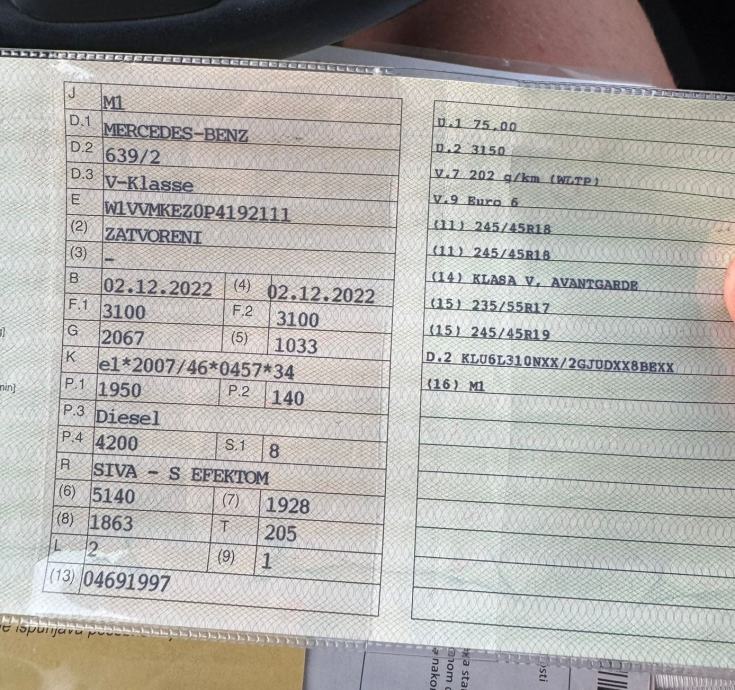 J M1
D.1 MERCEDES-BENZ
D.2 639/2
D.3 V-Klasse
E W1VVMKEZ0P4192111
(2) ZATVORENI
(3) –
B 02.12.2022 (4) 02.12.2022
F.1 3100 F.2 3100
G 2067 (5) 1033
K e1*2007/46*0457*34
P.1 1950 P.2 140
P.3 Diesel
P.4 4200 S.1 8
R SIVA - S EFEKTOM
(6) 5140 (7) 1928
(8) 1863 T 205
L 2 (9) 1
(13) 04691997
D.1 75,00
D.2 3150
V.7 202 g/km (WLTP)
V.9 Euro 6
(11) 245/45R18
(11) 245/45R18
(14) KLASA V, AVANTGARDE
(15) 235/55R17
(15) 245/45R19
D.2 KLU6L310NXX/2GJUDXX8BEXX
(16) M1